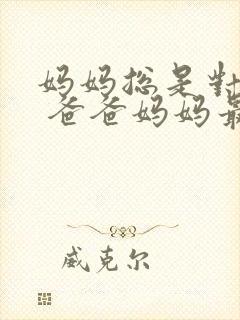 妈妈总是对
爸爸妈妈最
威克尔